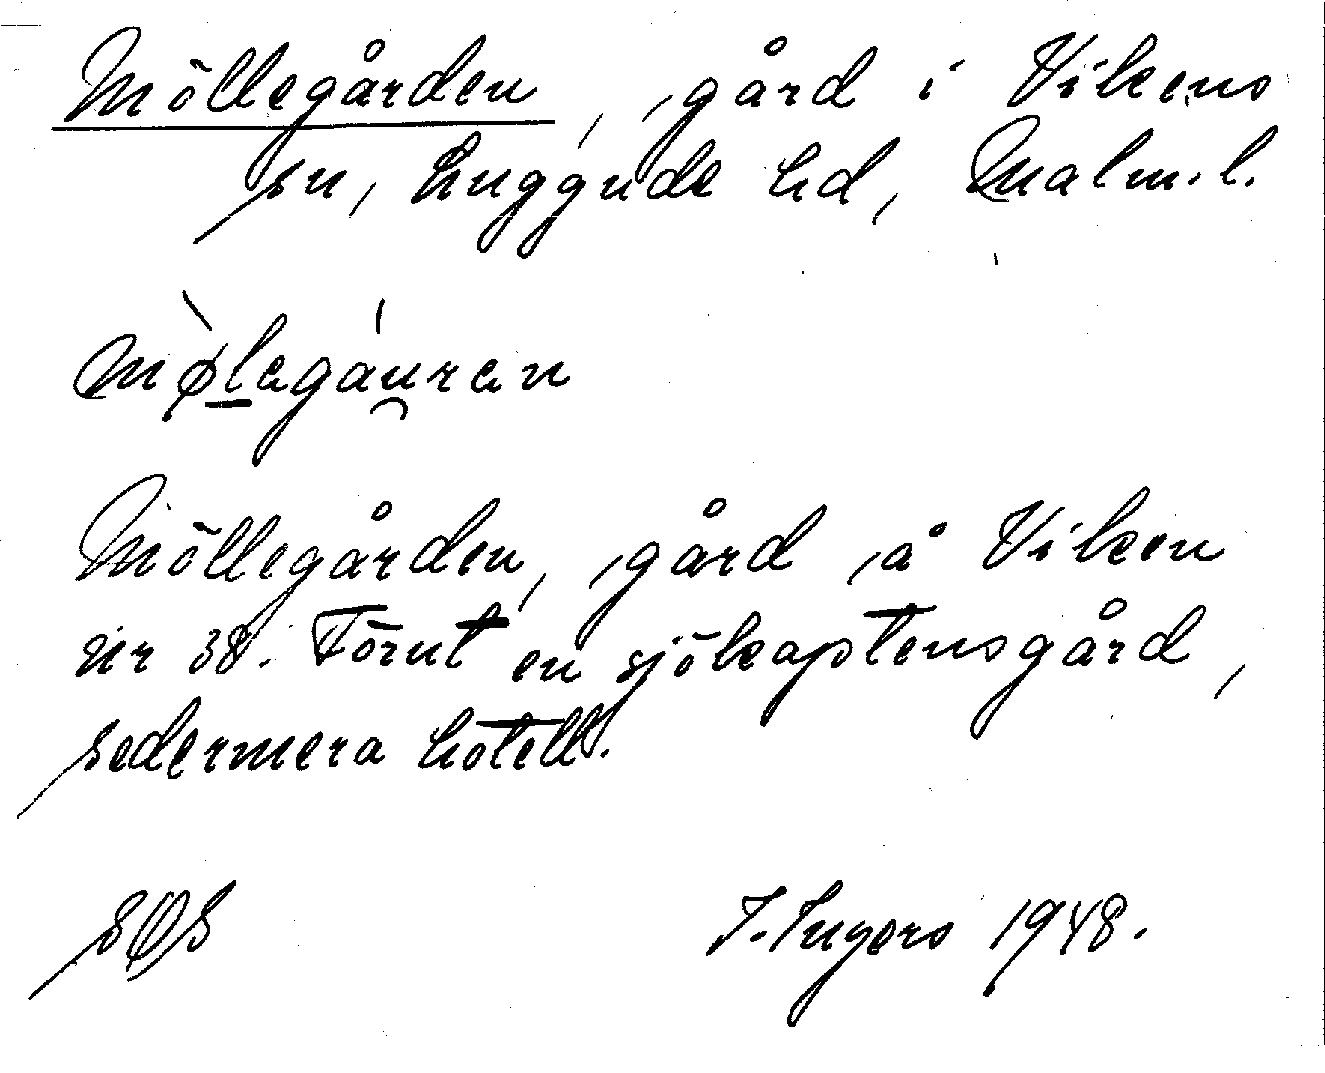 Möllegården, gård i Vikens
sn, Luggude hd, Malm.l.
mø̀legáu̯ran
Möllegården, gård å Viken
nr 38. Förut en sjökaptensgård,
sedermera hotell.
SOS I. Ingers 1948.